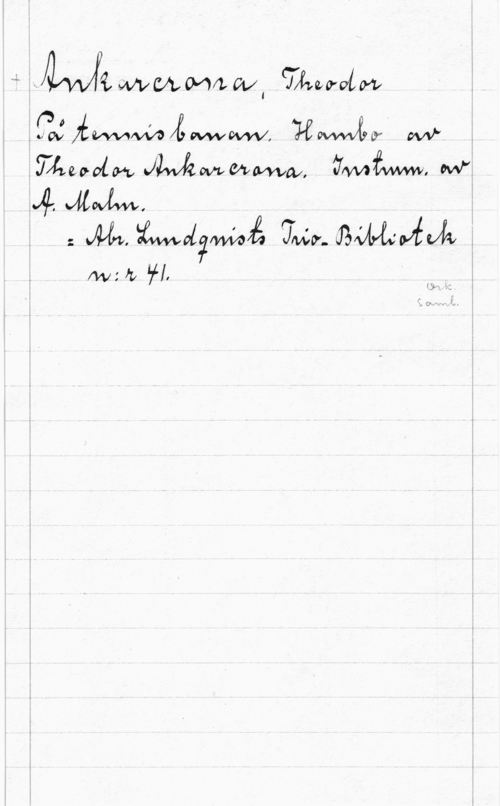 + Ankarcrona, Theodor
På tennisbanan. Hambo av
Theodor Ankarcrona. Instrum. av
A. Malm.
= Abr. Lundqvists Trio-Bibliotek
n:r 41.
Ork.
saml.